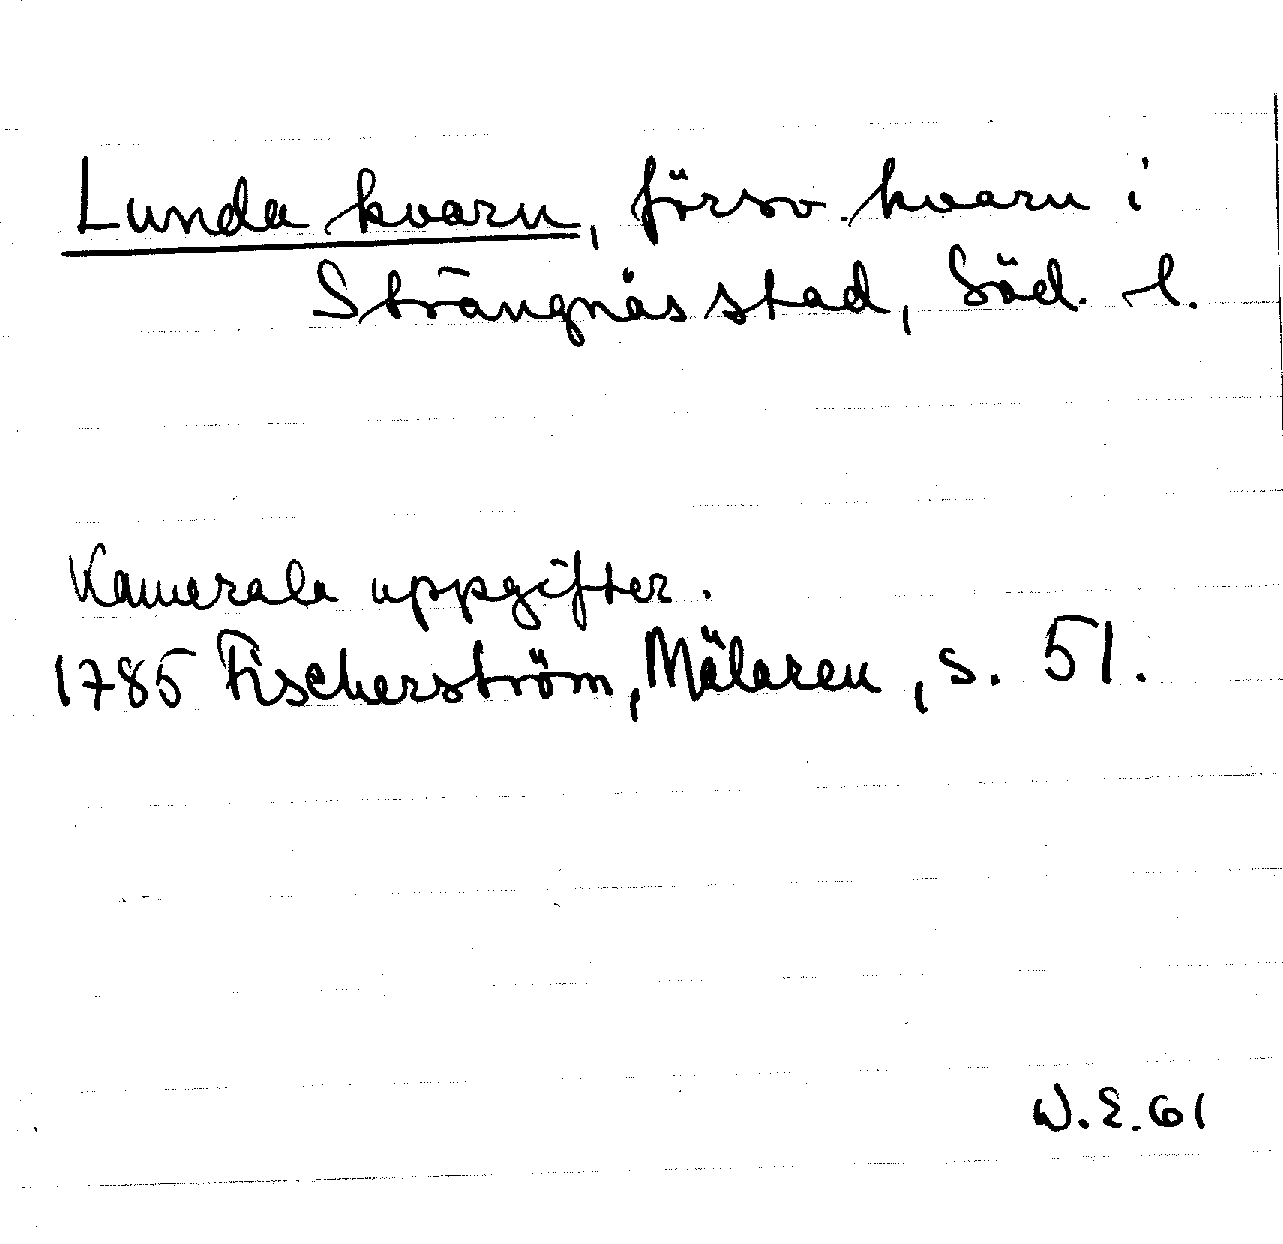 Lunda kvarn, försv. kvarn i
Strängnäs stad, Söd. l.
Kamerala uppgifter.
1785 Fischerström, Mälaren, s. 51.
W.E. 61